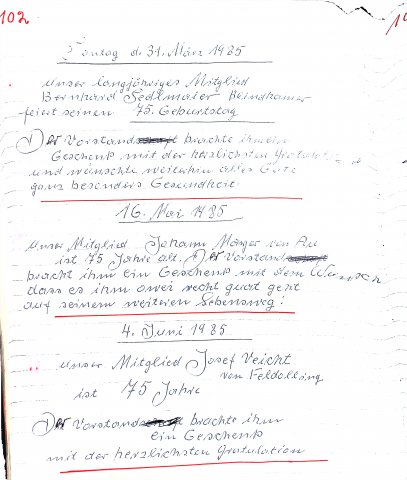 102
Sontag d. 31. März 1985
unser langjähriges Mitglied
Bernhard Sedlmaier Beindhamer
feiert seinen 75. Geburtstag
Der Vorstand brachte ihm ein
Geschenk mit der herzlichsten
und wünschte weiterhin alles Gute
ganz besonders Gesundheit
16. Mai 1985
Unser Mitglied Johann von Au
ist 75 Jahre alt. Der Vorstand
bracht ihm ein Geschenk mit dem Wunsch
dass es ihm recht guart geht
auf seinem weiteren Lebensweg!
4. Juni 1985
unser Mitglied Josef Veicht
von Feldolling
ist 75 Jahre
Der Vorstand brachte ihm
ein Geschenk
mit der herzlichsten Gratulation